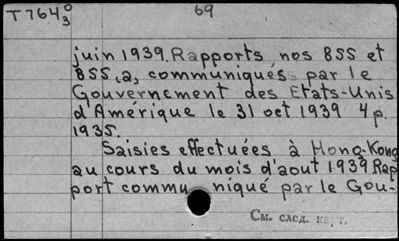 T7640 69
3
juin 1939. Rapports nos 855 et
855,a, communiqués par le
Gouvernement des Etats-Unis
d'Amérique le 31 oct 1939 4 p.
1935.
Saisies effectuées à Hong-Kong
au cours du mois d'aout 1939 Rap
port commu niqué par le Gou-
См. след. карт.